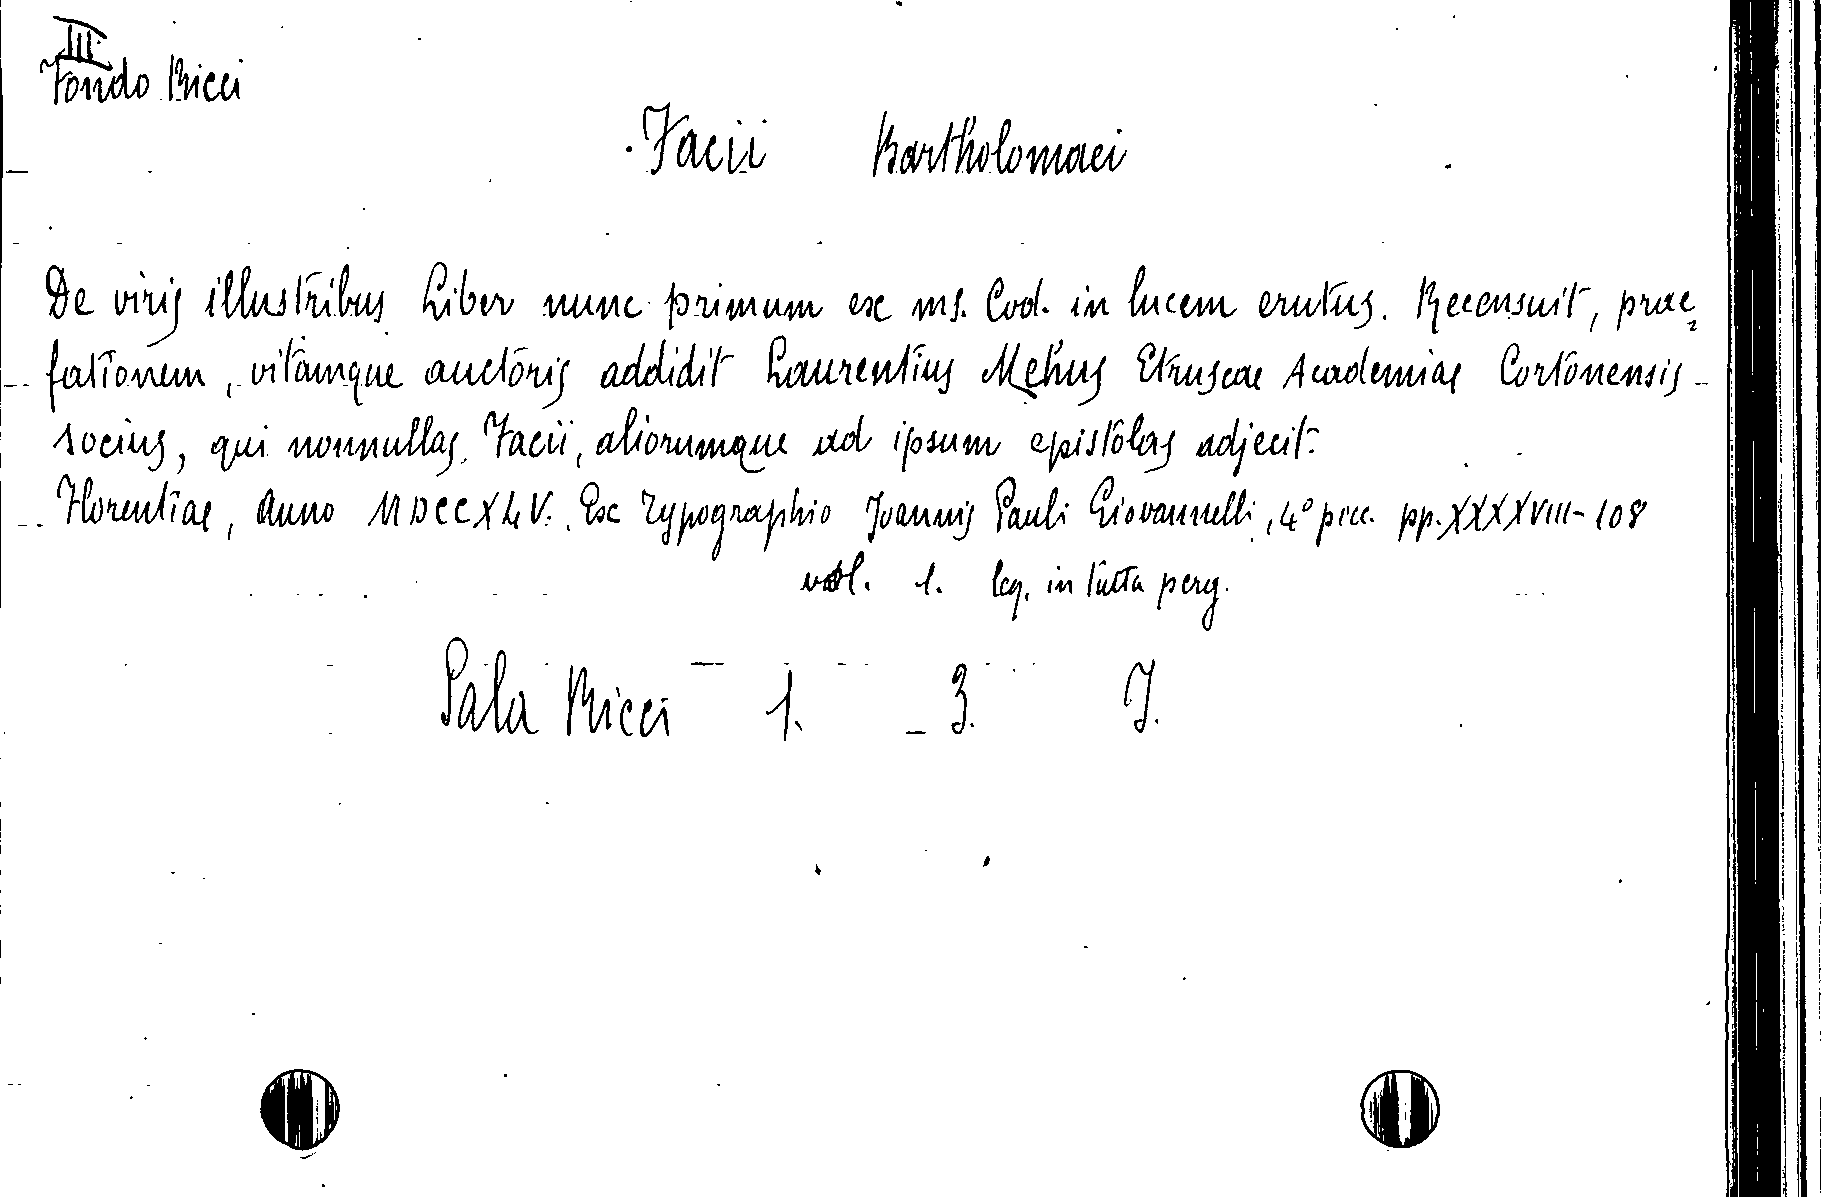 III
Fondo Ricci
Facii Bartholomaei
De viris illustribus Liber nunc primum ex ms. Cod. in lucem erutus. Recensuit, prae=
fationem, vitamque auctoris addidit Laurentius Mehus Etruscae Academiae Cortonensis
socius, qui nonnullas Facii, aliorumque ad ipsum epistolas adjecit.
Florentiae, Anno MDCCXLV. Ex Typographio Joannis Pauli Giovannelli, 4° picc. pp. XXXXVIII-108
vol. 1. leg. in tutta perg.
Sala Ricci 1. 3. J.